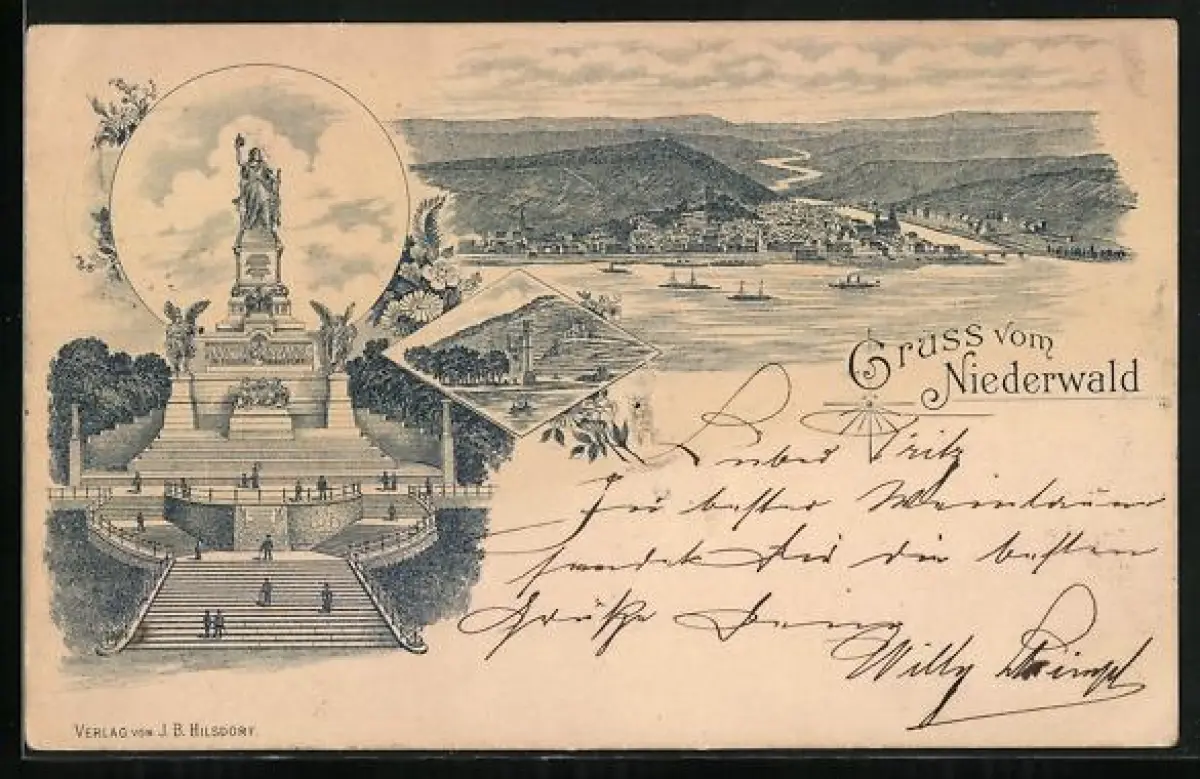 Gruss vom
Niederwald
Lieber Fritz
In bester Weinlaune
sendet Dir die besten
Grüße Dein
Willy
VERLAG VON J. B. HILSDORF.